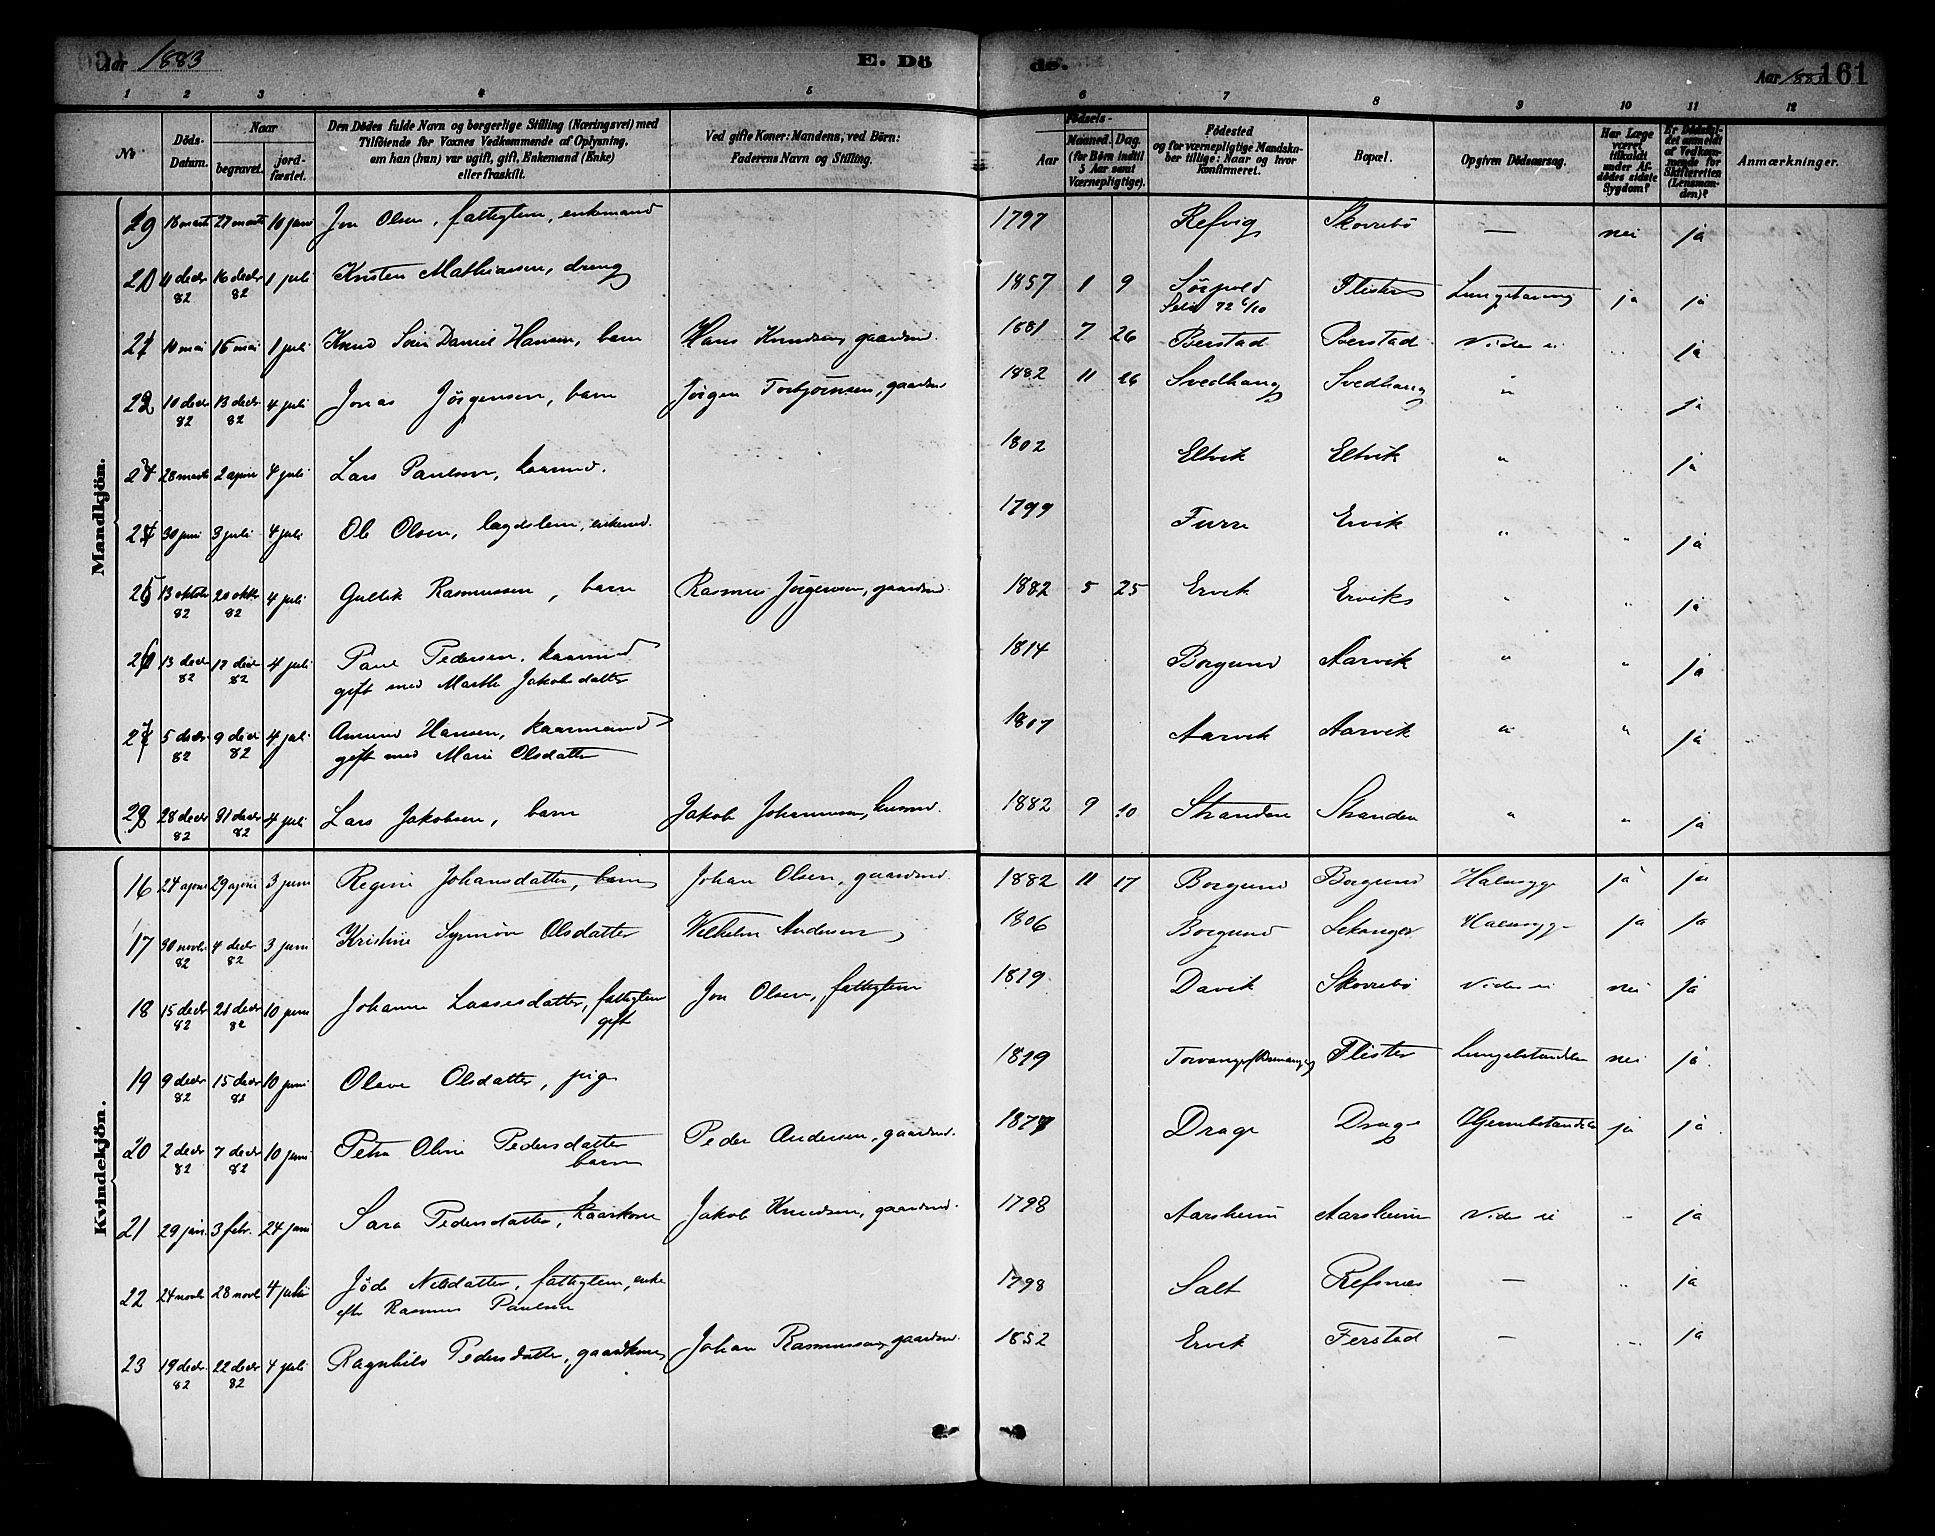 Aar 1883
E. Dö
de.
Aar 188
161
1 2 3 4 5 6 7 8 9 10 11 12
No
Döds-Datum.
Naar
begravet.
jord-fæstet.
Den Dödes fulde Navn og borgerlige Stilling (Næringsvei) med
Tilföiende for Voxnes Vedkommende af Oplysning,
om han (hun) var ugift, gift, Enkemand (Enke)
eller fraskilt.
Ved gifte Koner: Mandens, ved Börn:
Faderens Navn og Stilling.
Födsels-
Aar
Maaned. Dag.
(for Børn indtil
5 Aar samt
Værnepligtige).
Födested
og for værnepligtige Mandska-
ber tillige: Naar og hvor
konfirmeret.
Bopæl.
Opgiven Dödsaarsag.
Har Læge
været
tilkaldt
under Af-
dödes sidste
Sygdom?
Er Dödsfal-
det anmeldt
af Vedkom-
mende for
Skifteretten
(Lensman-
den)?
Anmærkninger.
Mandkjön.
18 marts 27 marts 10 juni Jon Olsen, fattiglem, enkemand 1797 Refvig Skorrebö — nei ja
11 decbr 82 16 decbr 82 1 juli Kristen Mathiassen, dreng 1857 1 9 Flister ja ja
15 mai 1 juli Knud Daniel Hansen, barn Hans Knudsen, gaardmd. 1881 7 26 Berstad Berstad Vides ei " ja
22 10 decbr 82 13 decbr 82 4 juli Jonas Jörgensen, barn Jörgen Torbjörnsen, gaardmd 1882 11 26 Svedhaug Svedhaug " " ja
28 marts 2 april 4 juli Lars Paulsen, kaarmd. 1802 Eltvik Eltvik " " ja
24 30 juni 3 juli 4 juli Ole Olsen, lægdslem, enkemd. 1799 Furre Ervik " " ja
25 13 oktbr 82 20 oktbr 82 4 juli Gullik Rasmussen, barn Rasmus Jörgensen, gaardmd. 1882 5 25 Ervik Ervik " " ja
26 13 decbr 82 17 decbr 82 4 juli Paul Pedersen, kaarmd
gift med Marthe Jakobsdatter 1814 Borgund Aarvik " " ja
27 5 decbr 82 9 decbr 82 4 juli Amund Hansen, kaarmand
gift med Marie Olsdatter 1807 Aarvik Aarvik " " ja
28 28 decbr 82 31 decbr 82 4 juli Lars Jakobsen, barn Jakob Johannessen, husmd. 1882 9 10 Stranden Stranden " " ja
Kvindekjön.
16 24 april 29 april 3 juni Regine Johansdatter, barn Johan Olsen, gaardmd. 1882 11 17 Borgund Borgund Halssyge ja ja
17 30 novbr 82 4 decbr 82 3 juni Kristine Synnöve Olsdatter Vilhelm Andersen 1806 Borgund Halssyge ja ja
18 15 decbr 82 21 decbr 82 10 juni Johanne Lassesdatter, fattiglem
gift Jon Olsen, fattiglem 1819 Davik Skorrebö Vides ei nei ja
19 9 decbr 82 15 decbr 82 10 juni Olave Olsdatter, pige 1819 Flister Lungebetændelse nei ja
20 2 decbr 82 7 decbr 82 10 juni Petra Oline Pedersdatter
barn Peder Andersen, gaardmd. Drage Drage Hjernebetændelse ja ja
21 29 jan. 3 febr. 24 juni Sara Pedersdatter, kaarkone Jakob Knudsen, gaardmd. 1798 Aarsheim Aarsheim Vides ei " ja
22 24 novbr 28 novbr 4 juli Jöde Nilsdatter, fattiglem, enke
efter Rasmus Paulsen 1798 Salt Refsnes — " ja
23 19 decbr 82 22 decbr 82 4 juli Ragnhild Pedersdatter, gaardkone Johan Rasmussen, gaardmd. 1852 Ervik Ferstad — " ja